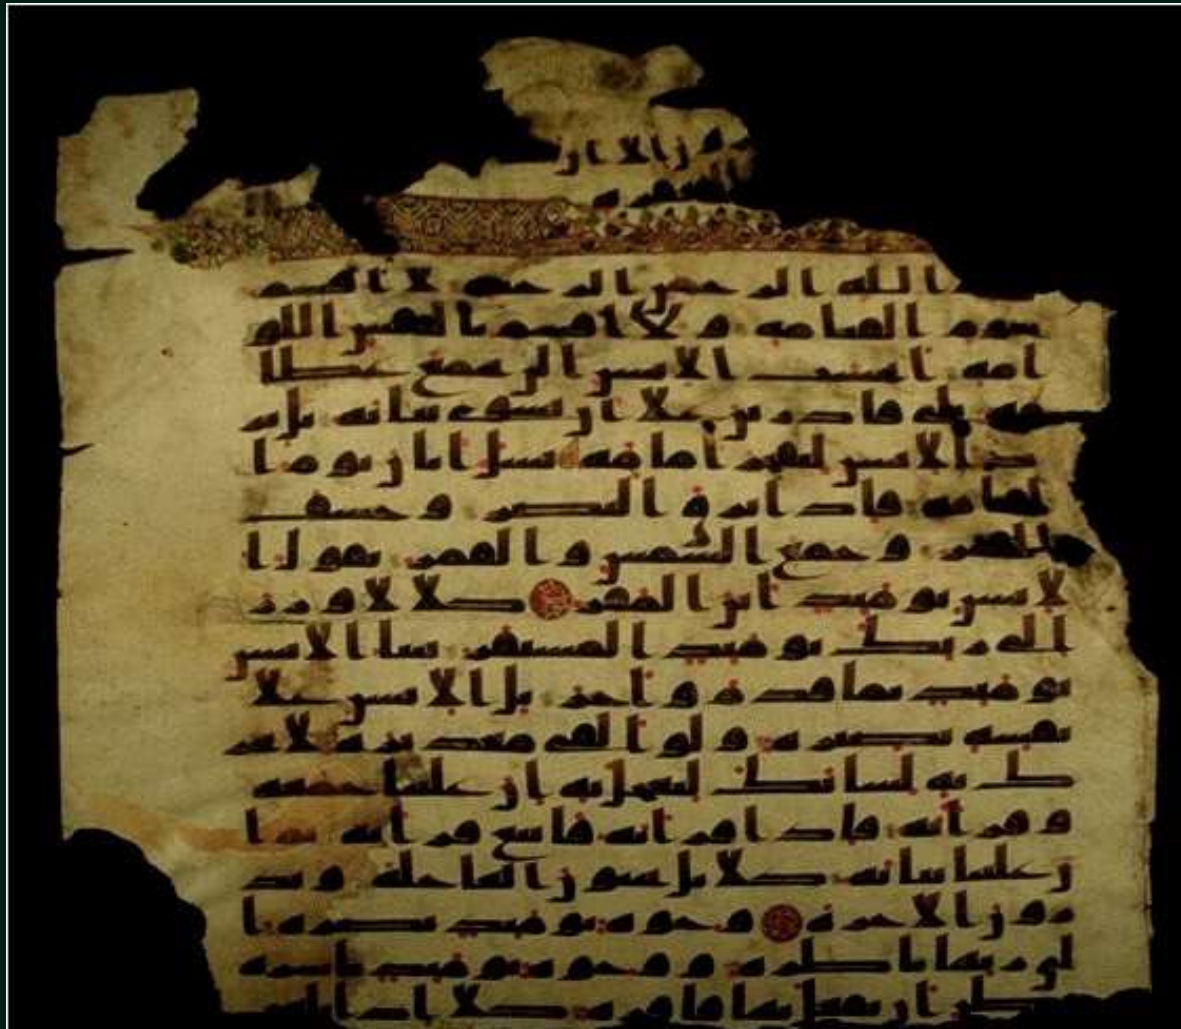 ون الا ان
الله الرحمن الرحيم لا اقسم
بيوم القيامة ولا اقسم بالنفس اللو
امة ايحسب الانسن الن نجمع عظا
مه بلى قادرين علا ان نسوي بنانه بل ير
يد الانسن ليفجر امامه يسل ايان يوم ا
لقيامة فاذا برق البصر وخسف
القمر وجمع الشمس والقمر يقول ا
لانسن يومئذ اين المفر كلا لا وزر
الى ربك يومئذ المستقر ينبا الانسن
يومئذ بما قدم واخر بل الانسن علا
نفسه بصيرة ولو القى معذيره لا تحر
ك به لسانك لتعجل به ان علينا جمعه
وقرانه فاذا قرانه فاتبع قرانه ثم ا
ن علينا بيانه كلا بل تحبون العاجلة وتذ
رون الاخرة وجوه يومئذ نضرة ا
لى ربها ناظرة ووجوه يومئذ باسرة
تظن ان يفعل بها فاقرة كلا اذا